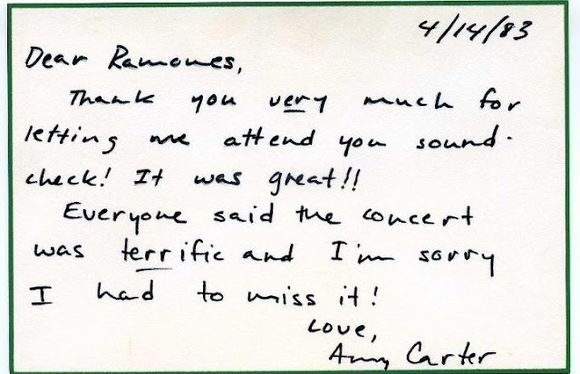 4/14/83
Dear Ramones,
Thank you very much for
letting me attend you sound-
check! It was great!!
Everyone said the concert
was terrific and I'm sorry
I had to miss it!
Love,
Amy Carter